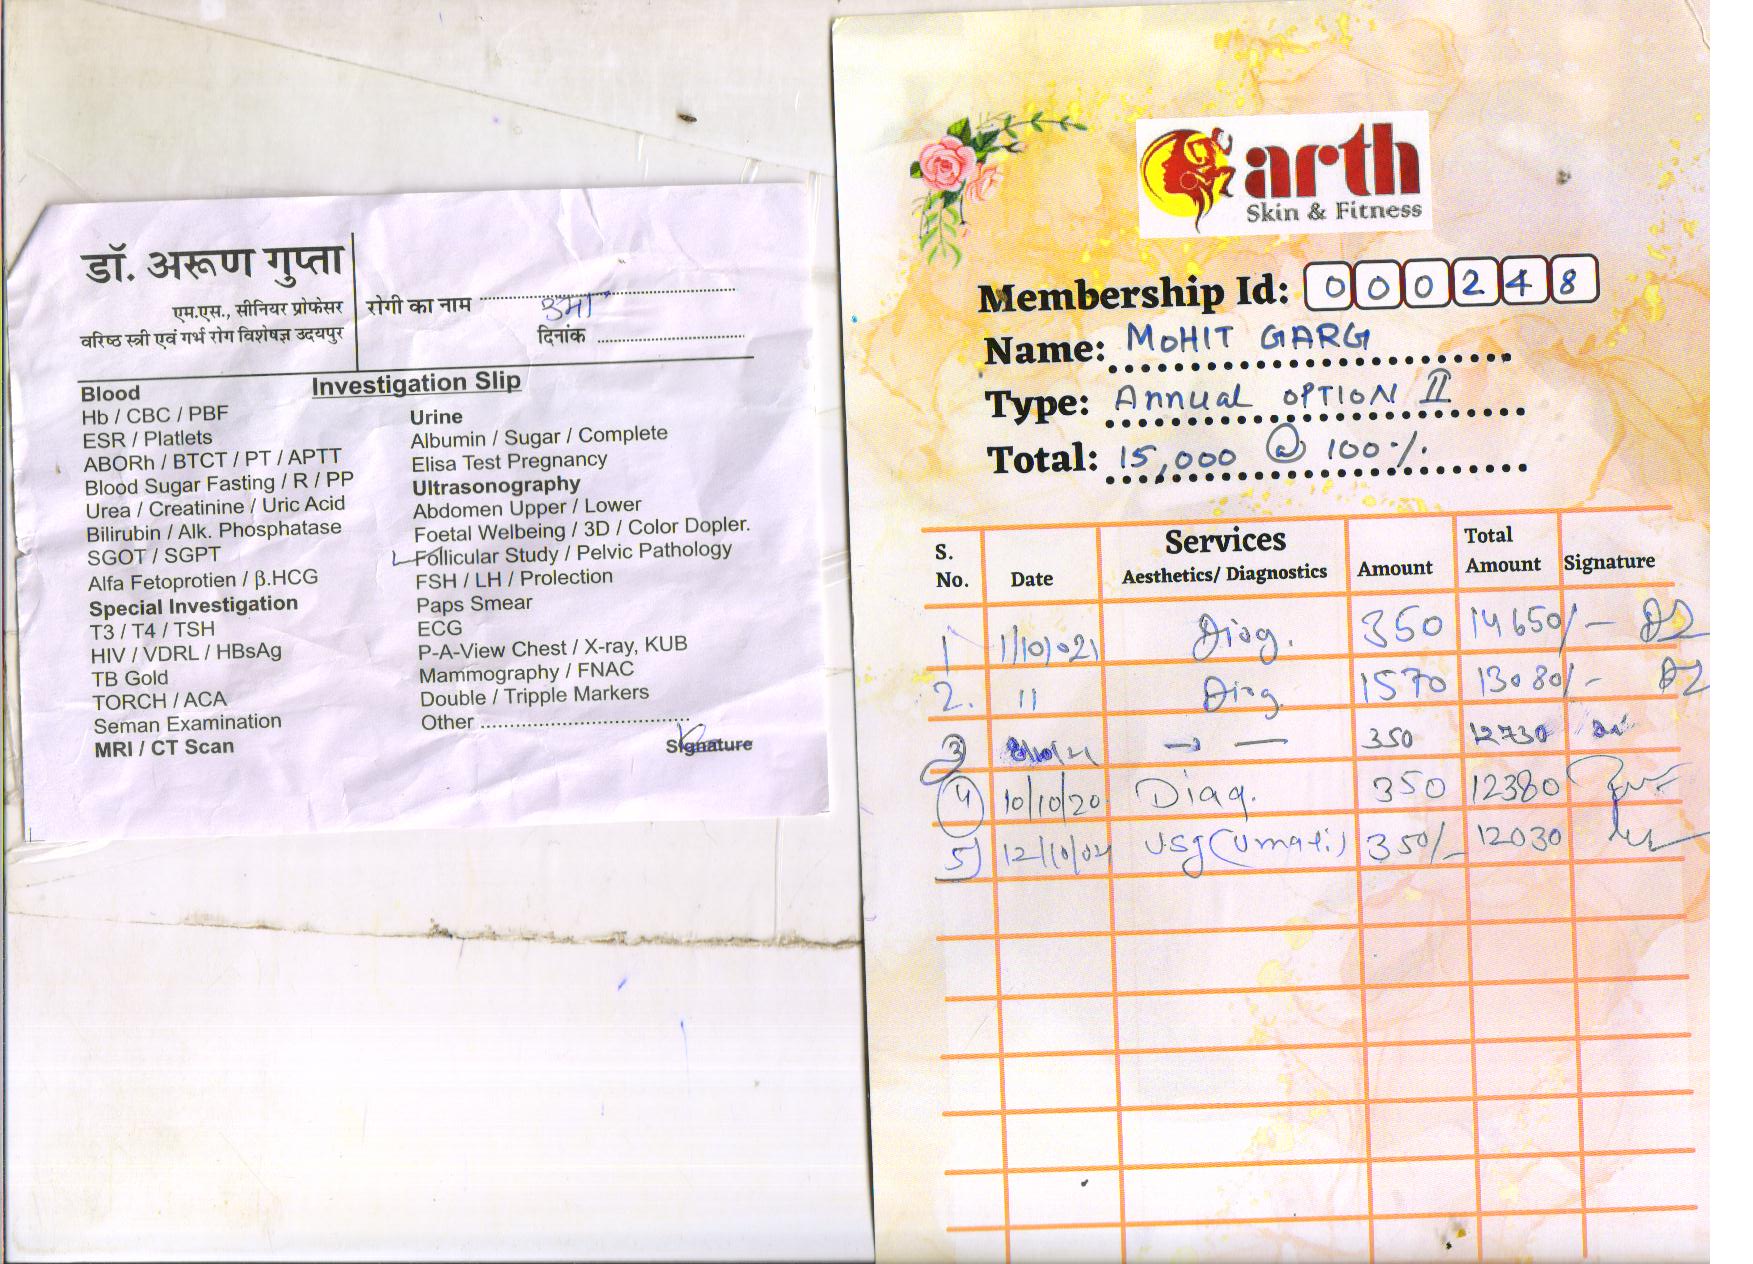 डॉ. अरूण गुप्ता
एम.एस., सीनियर प्रोफेसर
वरिष्ठ स्त्री एवं गर्भ रोग विशेषज्ञ उदयपुर
रोगी का नाम उमा
दिनांक
Investigation Slip
Blood
Hb / CBC / PBF
ESR / Platlets
ABORh / BTCT / PT / APTT
Blood Sugar Fasting / R / PP
Urea / Creatinine / Uric Acid
Bilirubin / Alk. Phosphatase
SGOT / SGPT
Alfa Fetoprotien / β.HCG
Special Investigation
T3 / T4 / TSH
HIV / VDRL / HBsAg
TB Gold
TORCH / ACA
Seman Examination
MRI / CT Scan
Urine
Albumin / Sugar / Complete
Elisa Test Pregnancy
Ultrasonography
Abdomen Upper / Lower
Foetal Welbeing / 3D / Color Dopler.
Follicular Study / Pelvic Pathology
FSH / LH / Prolection
Paps Smear
ECG
P-A-View Chest / X-ray, KUB
Mammography / FNAC
Double / Tripple Markers
Other
Signature
arth
Skin & Fitness
Membership Id: 000248
Name: MOHIT GARG
Type: Annual OPTION II
Total: 15,000 @ 100%.
S. No. Date Services Aesthetics/ Diagnostics Amount Total Amount Signature
1 1/10/021 Diag. 350 14650/-
2. 11 Diag. 1570 13080/-
3 350 12730
4 10/10/20 Diag. 350 12380
5) 12/10/021 USG (Umati) 350/- 12030